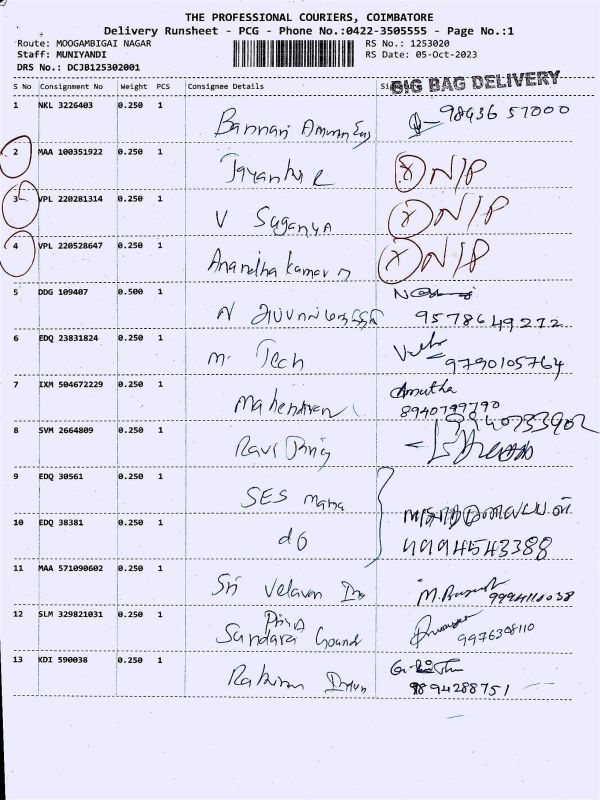 THE PROFESSIONAL COURIERS, COIMBATORE
Delivery Runsheet - PCG - Phone No.:0422-3505555 - Page No.:1
Route: MOOGAMBIGAI NAGAR RS No.: 1253020
Staff: MUNIYANDI RS Date: 05-Oct-2023
DRS No.: DCJB125302001
BIG BAG DELIVERY
S No Consignment No Weight PCS Consignee Details
1 NKL 3226403 0.250 1 Bannari Amman 98436 57000
2 MAA 100351922 0.250 1 N/P
3 VPL 220281314 0.250 1 V Suganya N/P
4 VPL 220528647 0.250 1 Anandha kumar N/P
5 DDG 109407 0.500 1 N 9578649272
6 EDQ 23831824 0.250 1 M. Tech 9790105764
7 IXM 504672229 0.250 1 Mahendran Amutha
8940799790
8 SVM 2664809 0.250 1 Ravi
9 EDQ 30561 0.250 1 SES
10 EDQ 38381 0.250 1 do 9994543388
11 MAA 571090602 0.250 1 Sri Velavan 9994110038
12 SLM 329821031 0.250 1 Sundara 9976308110
13 KDI 590038 0.250 1 9894288751